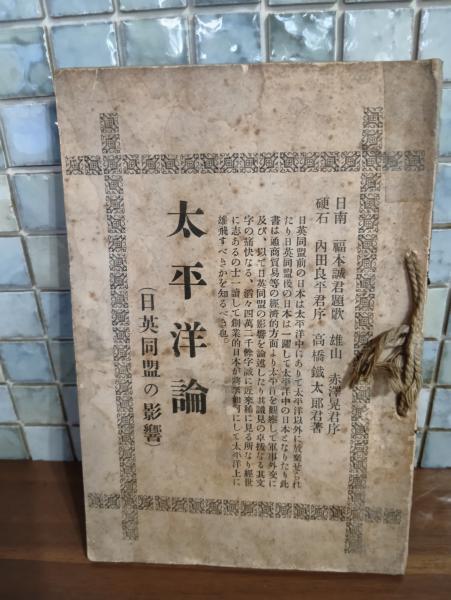 日南 福本誠君題歌 雄山 赤澤晃君序
硬石 內田良平君序 高橋鐵太郎君著
日英同盟前の日本は太平洋中にありて太平洋以外に放棄せられ
たり日英同盟後の日本は一躍して太平洋中の日本となりたり此
書は通商貿易等の經濟的方面より太平洋を觀察して軍事外交に
及び、以て日英同盟の影響を論述したり其議見の卓拔なる其文
字の痛快なる、滔々四萬二千餘字誠に近來稀に見る所なり經世
に志あるの士一讀して創業的日本が將來如何にして太平洋上に
雄飛すべきかを知るべき也。
太平洋論
(日英同盟の影響)